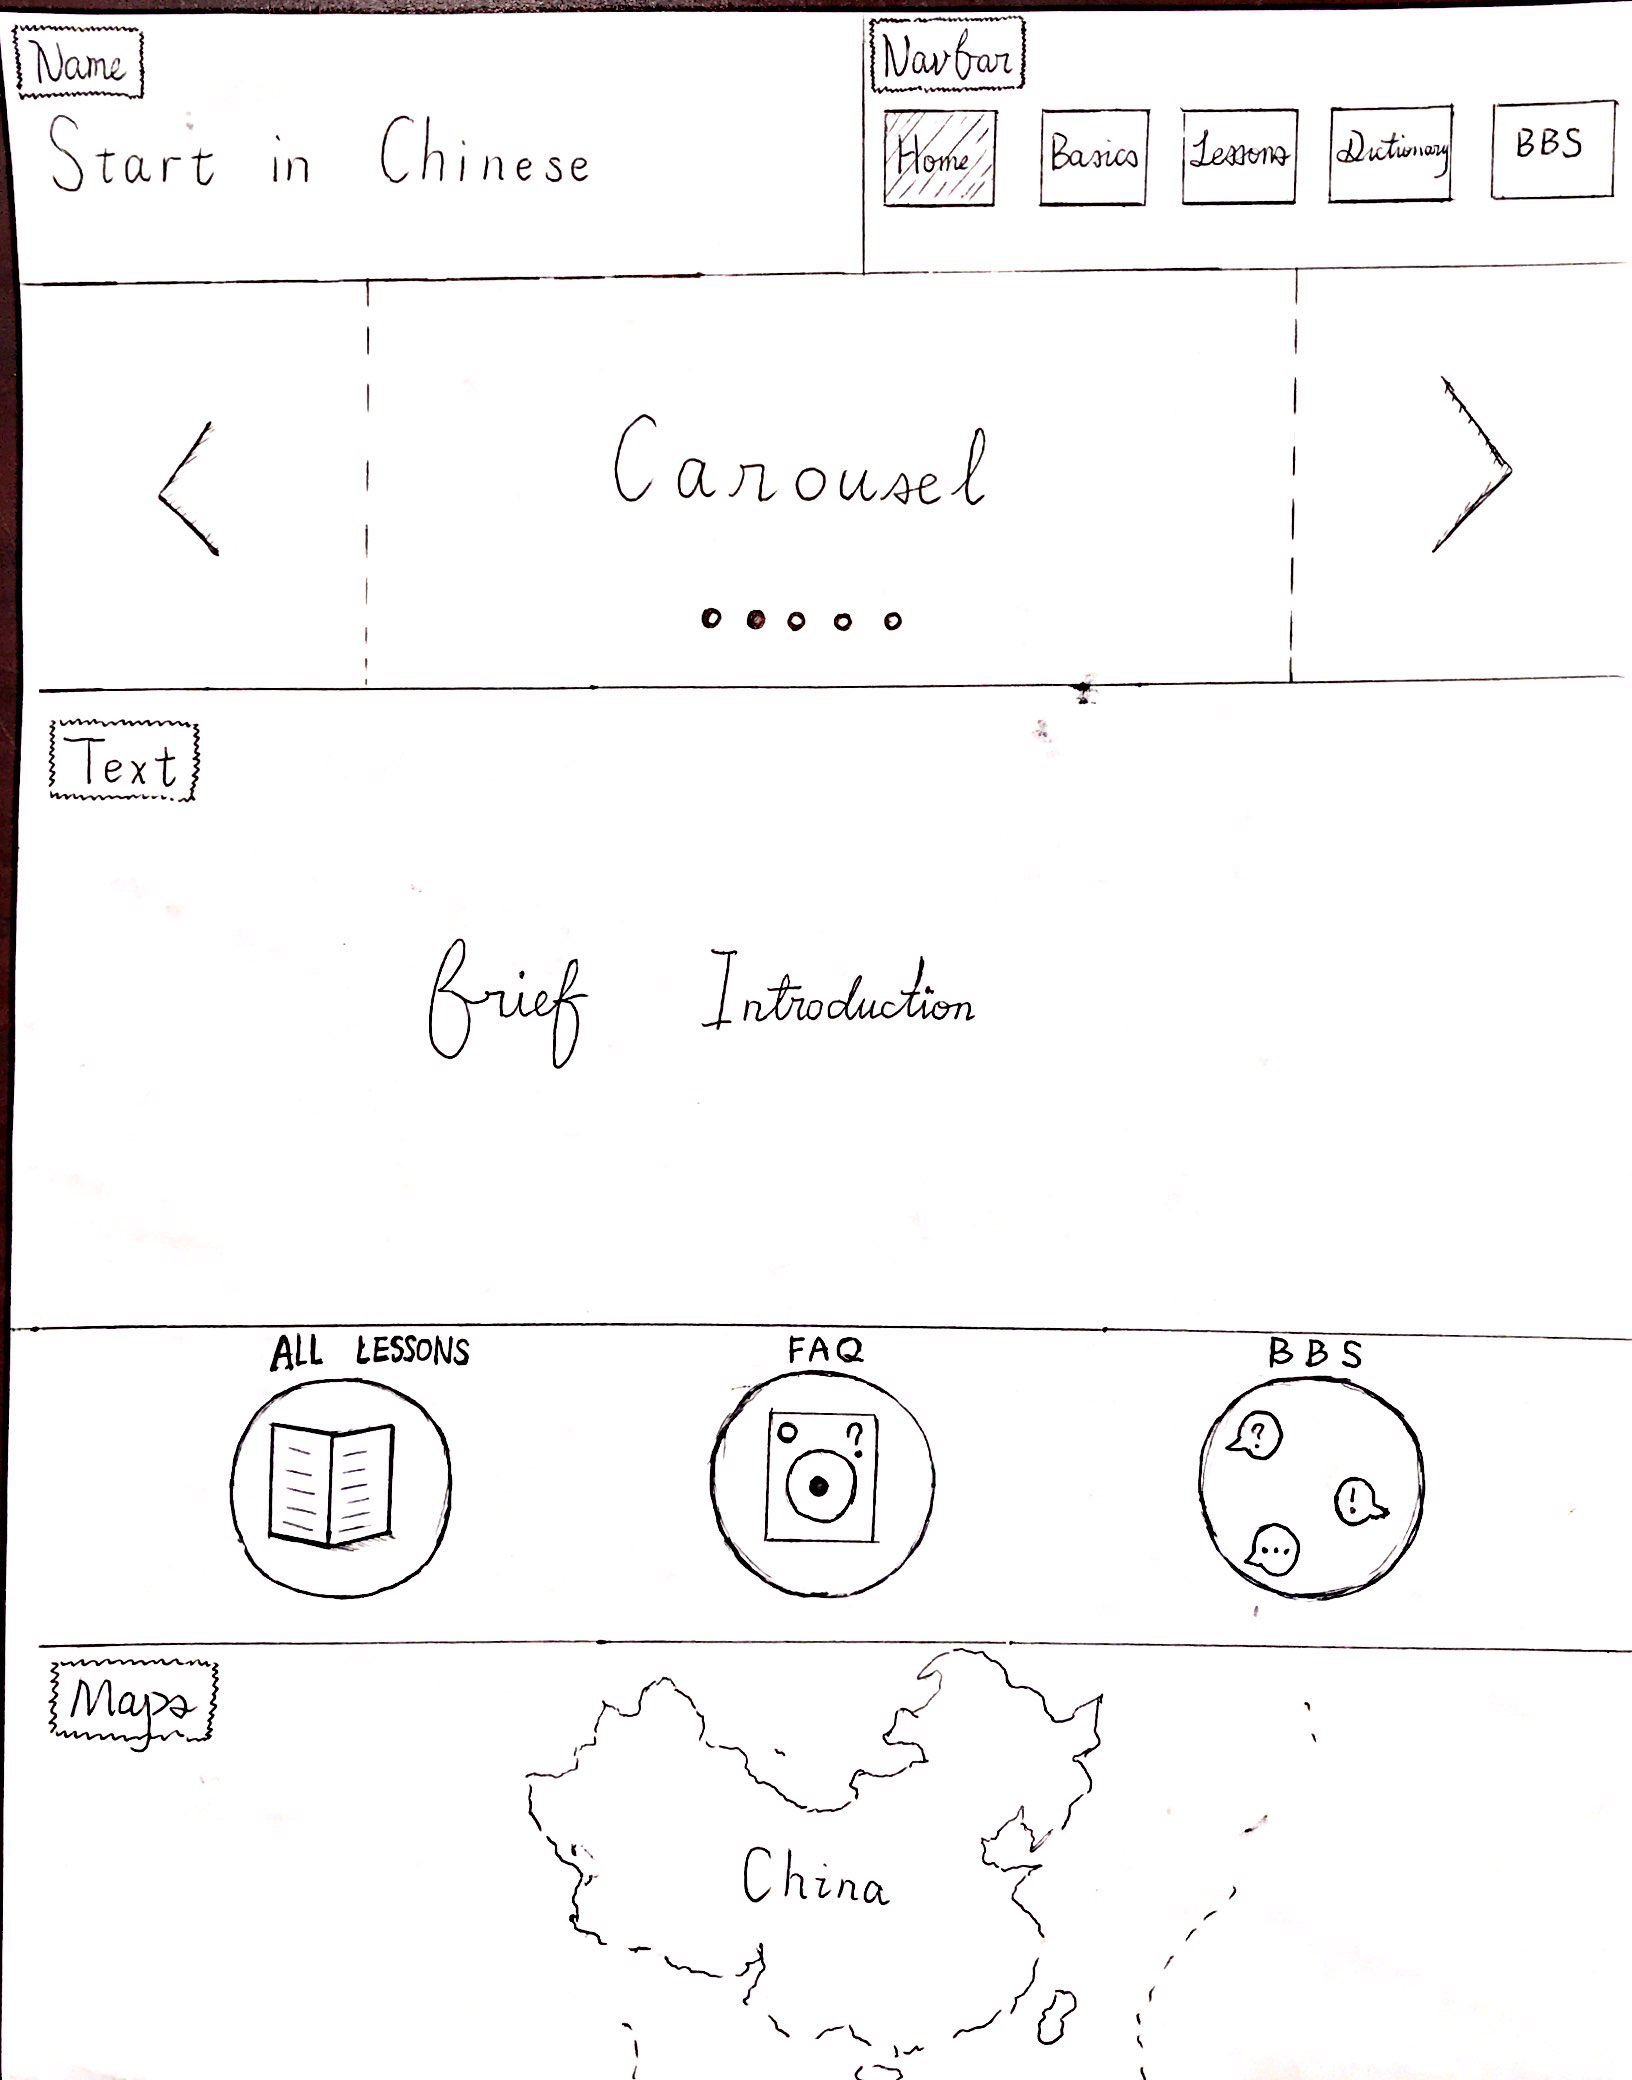 Name
Navbar
Start in Chinese
Home
Basics
Lessons
Dictionary
BBS
Carousel
Text
Brief Introduction
ALL LESSONS
FAQ
BBS
?
?
!
...
Maps
China